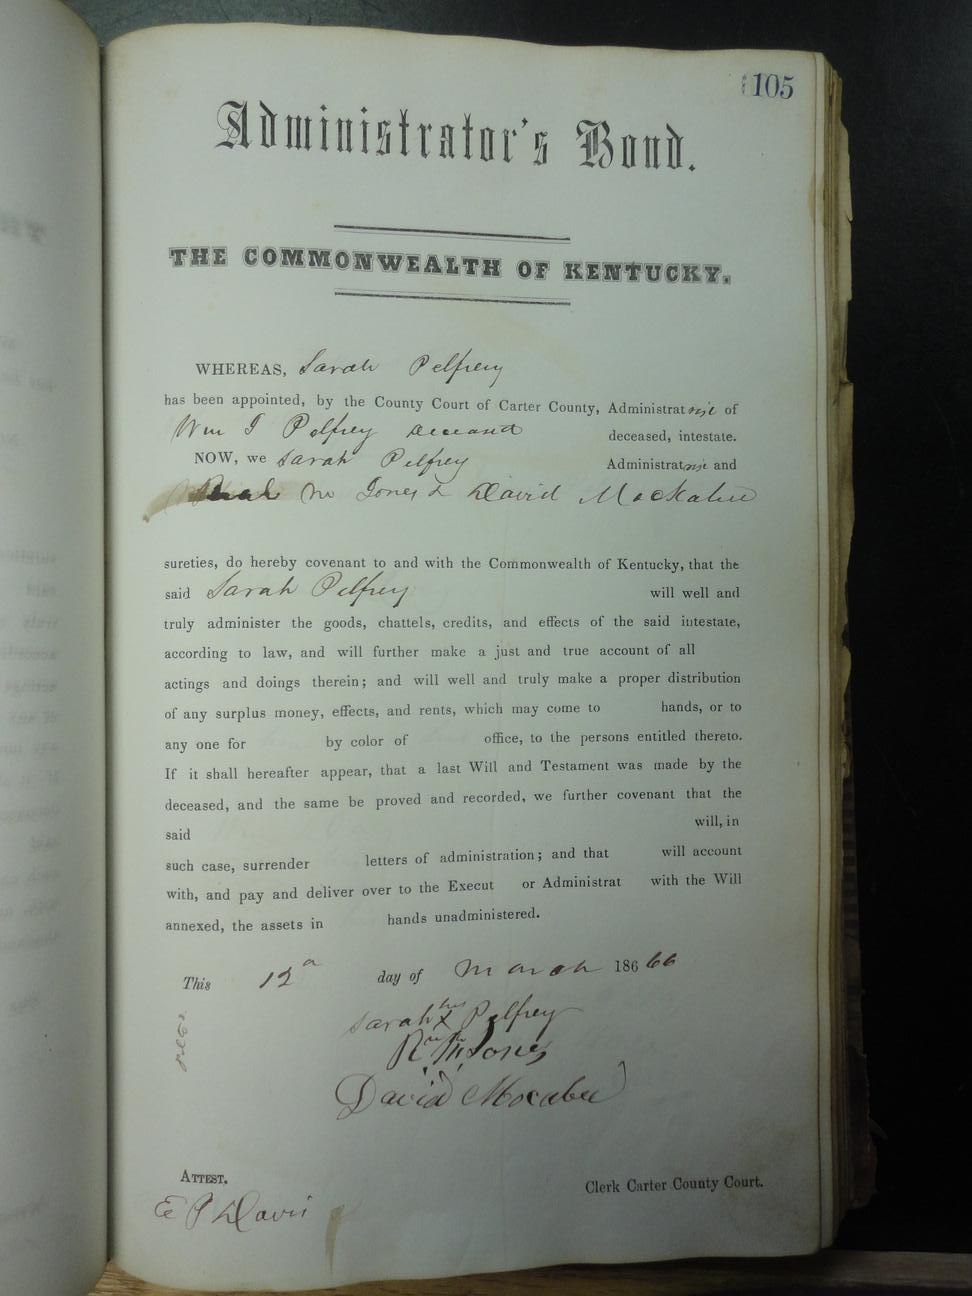 105
Administrator's Bond.
THE COMMONWEALTH OF KENTUCKY.
WHEREAS, Sarah Pelfrey
has been appointed, by the County Court of Carter County, Administratrix of
Wm J Pelfrey deceased deceased, intestate.
NOW, we Sarah Pelfrey Administratrix and
M Jones & David Mackabee
sureties, do hereby covenant to and with the Commonwealth of Kentucky, that the
said Sarah Pelfrey will well and
truly administer the goods, chattels, credits, and effects of the said intestate,
according to law, and will further make a just and true account of all
actings and doings therein; and will well and truly make a proper distribution
of any surplus money, effects, and rents, which may come to hands, or to
any one for by color of office, to the persons entitled thereto.
If it shall hereafter appear, that a last Will and Testament was made by the
deceased, and the same be proved and recorded, we further covenant that the
said will, in
such case, surrender letters of administration; and that will account
with, and pay and deliver over to the Execut or Administrat with the Will
annexed, the assets in hands unadministered.
This 12 day of March 186 66
Sarah her X Pelfrey
R M Jones
David Mocabee
ATTEST,
Clerk Carter County Court.
E P Davis